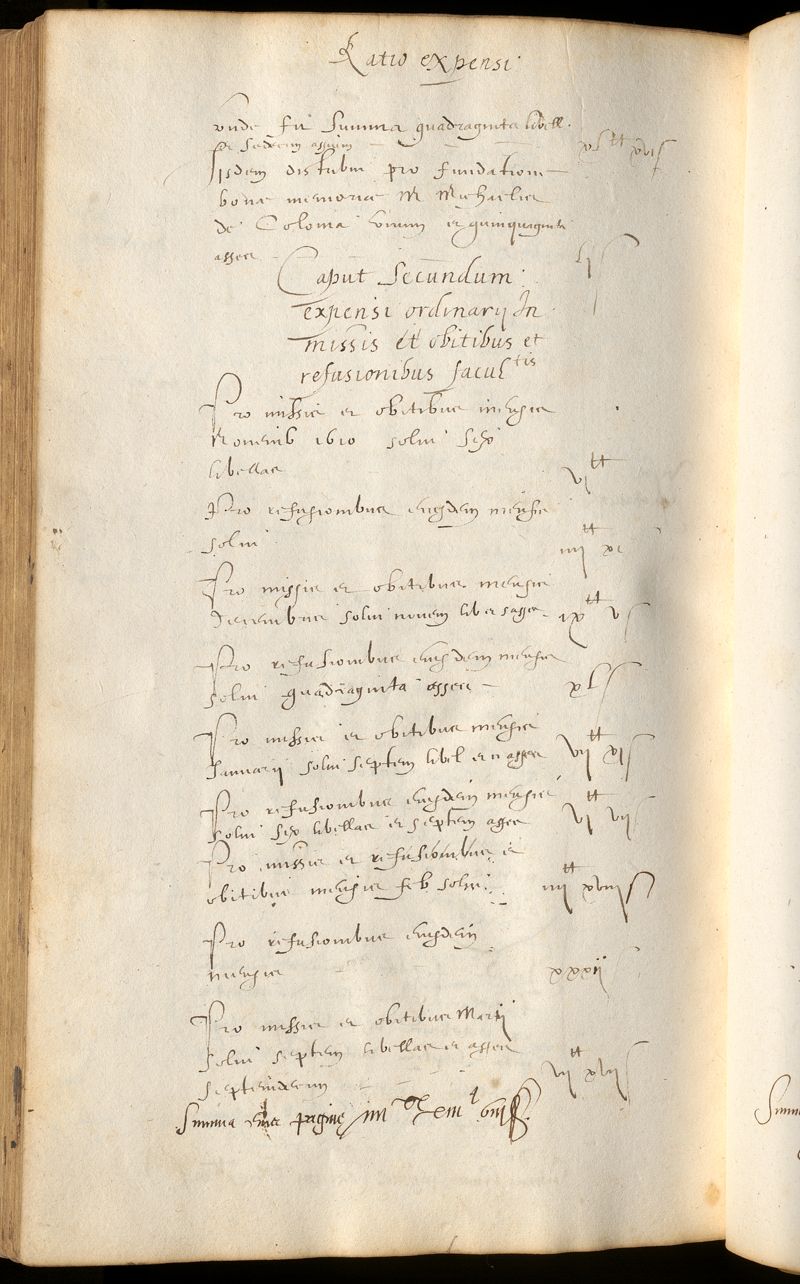 Ratio expensi
unde fit Summa quadraginta libell.
et sedecim assium xl tt xvi ſ
Iisdem distribui pro fundatione
bonæ memoriæ M Michaelis
de Colonia unum et quinquaginta
asses lj ſ
Caput Secundum
expensi ordinarij In
missis et obitibus et
refusionibus facultis
Pro missis et obitibus mensis
Novemb 1610 solui sex
libellas vi tt
Pro refusionibus eiusdem mensis
solui iiii tt xi
Pro missis et obitibus mensis
Decembris solui novem lib et 5 asses ix tt v ſ
Pro refusionibus eiusdem mensis
solui quadraginta asses xl ſ
Pro missis et obitibus mensis
Januarij solui septem libel et 11 asses vii tt xi ſ
Pro refusionibus eiusdem mensis
solui sex libellas et septem asses vi tt vii ſ
Pro missis et refusionibus et
obitibus mensis feb solui iiii tt xviii ſ
Pro refusionibus eiusdem
mensis xxxij
Pro missis et obitibus Martij
solui septem libellas et asses
septemdecim vii tt xvii ſ
Summa pagine
Summ